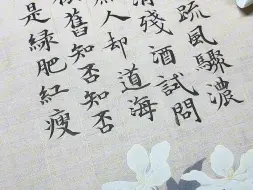 疏風驟濃
消殘酒試問
人却道海
舊知否知否
是綠肥紅瘦